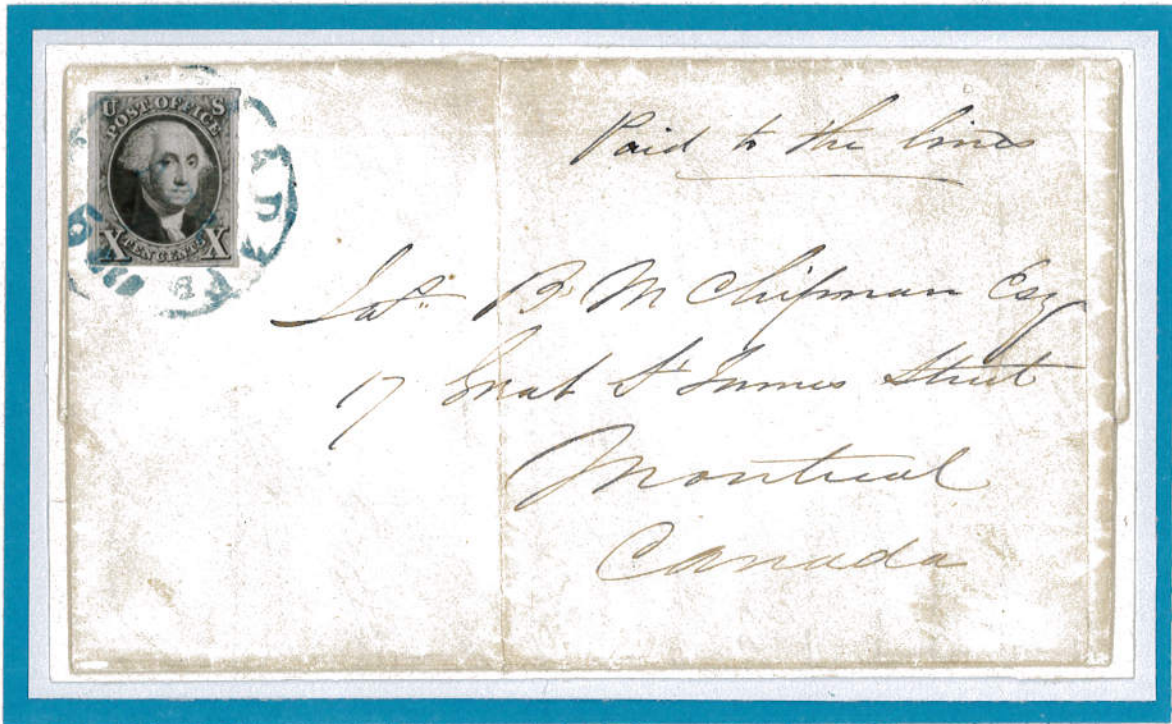 U S
POST OFFICE
TEN CENTS
X X
Paid to the lines
B M Chipman Esq
17 Great St James Street
Montreal
Canada